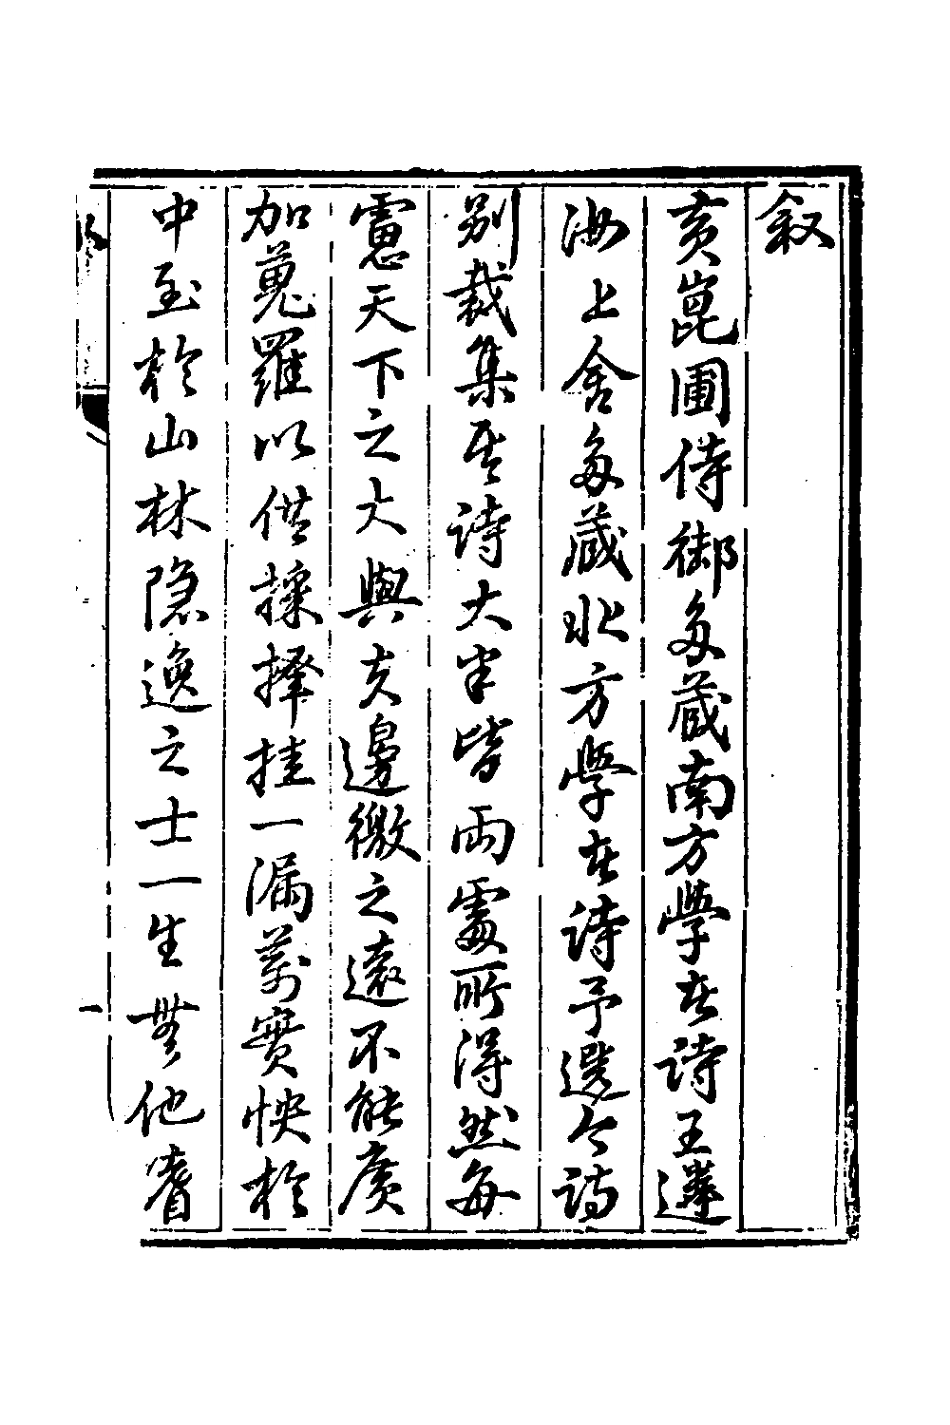 叙
黃崑圃侍御多藏南方學者詩王遴
汝上舍多藏北方學者詩予選今詩
别裁集其詩大半皆兩處所得然每
慮天下之大與夫邊徼之遠不能廣
加蒐羅以供採擇挂一漏萬實怏於
中至於山林隱逸之士一生無他嗜